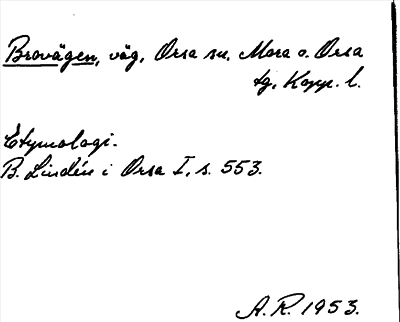 Brovägen, väg, Orsa sn, Mora o. Orsa
tg, Kopp. l.
Etymologi.
B. Lindén i Orsa I, s. 553.
A.R. 1953.